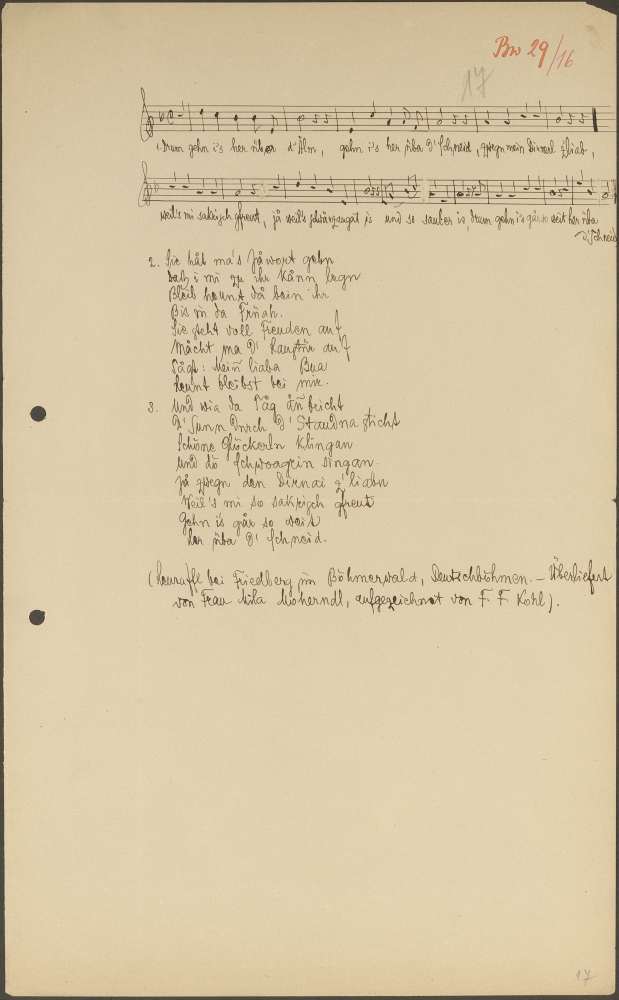 Bw 29/16
17
1. Drum gehn i's her über d' Ålm, gehn i's her üba d' Schneid, zwegn mein Dirnerl z'liab,
weil's mi sakrisch gfreut, jå weil's schwårzaugat is und so sauber is, drum gehn i's går so weit her üba
d'Schneid
2. Sie håt ma's Jåwort gebn
Daß i mi zu ihr kånn legn
Bleib heunt då bein ihr
Bis in da Früah.
Sie steht voll Freuden auf
Måcht ma d' Haustür auf
Sågt: Mein liaba Bua
heunt bleibst bei mir.
3. Und wia da Tåg ånbricht
D' Sunn durch d' Staudna sticht
Schöne Glöckerln klingan
und dö Schwoagrin singan.
Jå zwegn den Dirnai z' liabn
Weil's mi so sakrisch gfreut
Gehn i's går so weit
her üba d' Schneid.
(Heuraffl bei Friedberg im Böhmerwald, Deutschböhmen. – Überliefert
von Frau Micherndl, aufgezeichnet von F. F. Kohl).
17